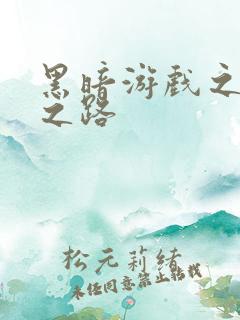 黑暗游戏之
之路
松元莉绪
未经同意禁止转载